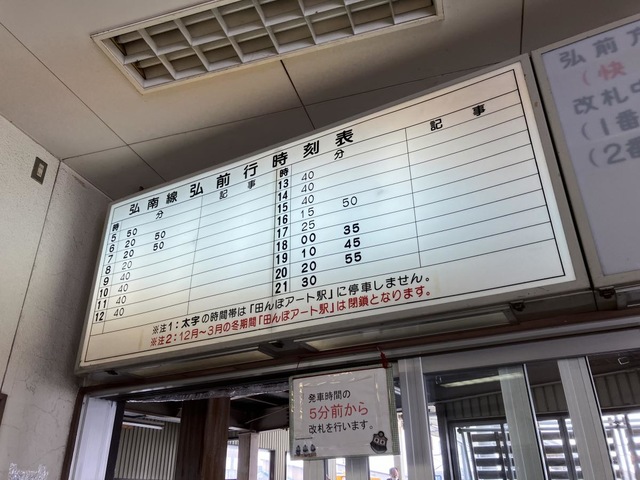 弘南線 弘前行時刻表
時 分 記事
5 50
6 20 50
7 20 50
8 20
9 40
10 40
11 40
12 40
時 分 記事
13 40
14 40
15 40
16 15 50
17 25
18 00 35
19 10 45
20 20 55
21 30
※注1：太字の時間帯は「田んぼアート駅」に停車しません。
※注2：12月～3月の冬期間「田んぼアート駅」は閉鎖となります。
弘前ア
（快
改札
（1番
（2番
発車時間の
5分前から
改札を行います。